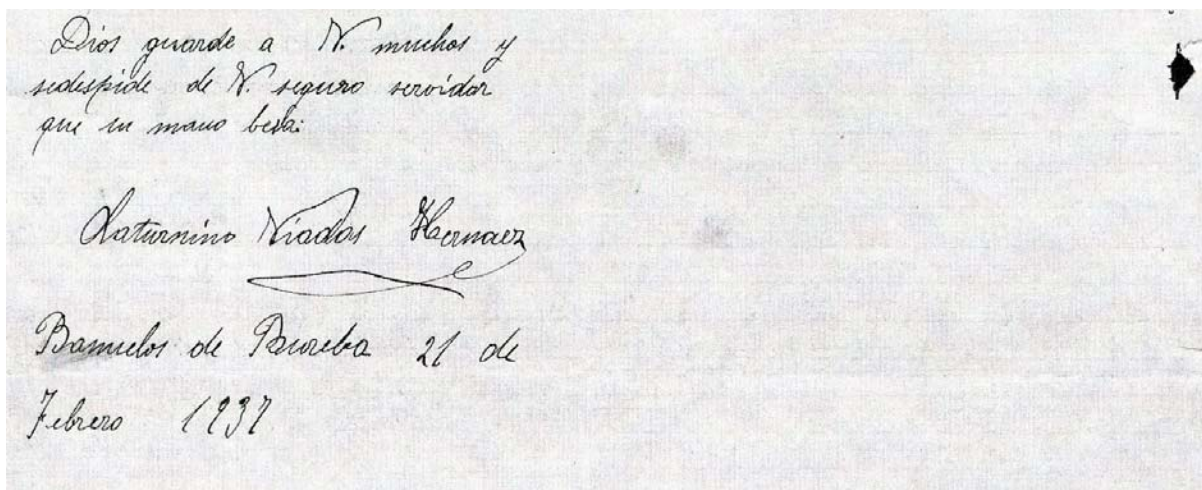 Dios guarde a V. muchos y
sedespide de V. seguro servidor
que su mano besa:
Saturnino Viadas Hernaez
Bañuelos de Bureba 21 de
Febrero 1937